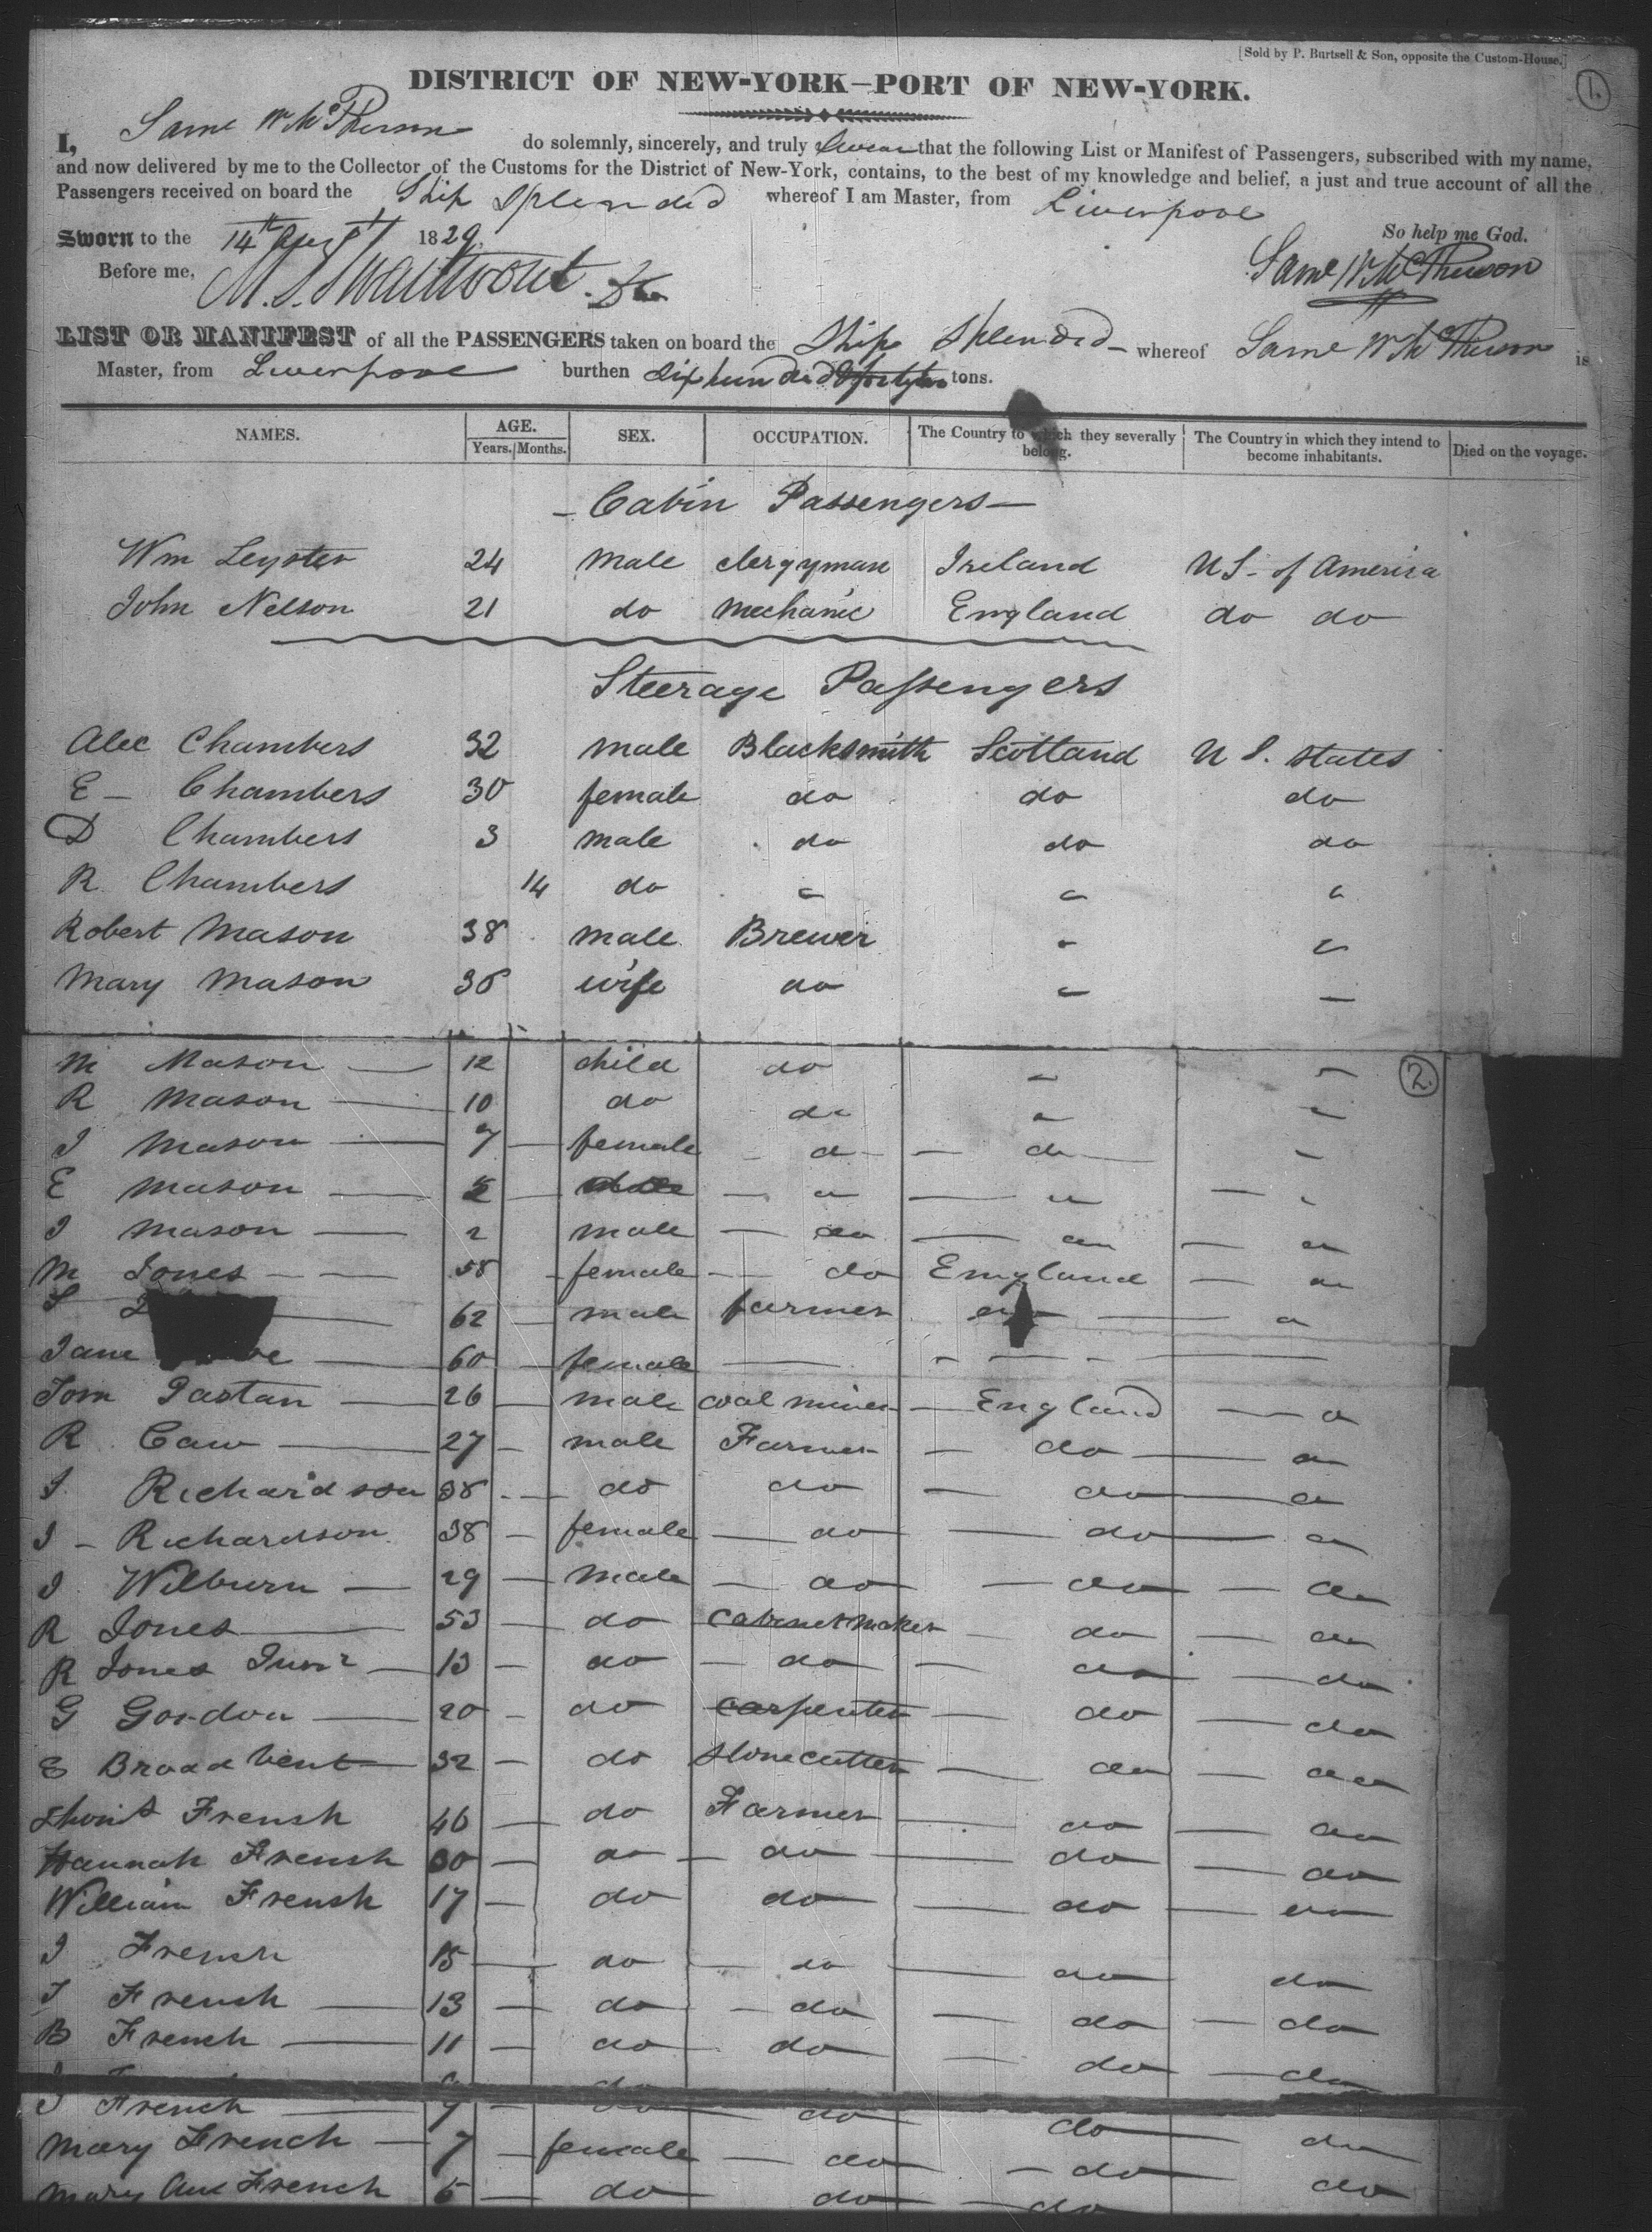 [Sold by P. Burtsell & Son, opposite the Custom-House.]
1.
DISTRICT OF NEW-YORK—PORT OF NEW-YORK.
I, Saml W McPherson do solemnly, sincerely, and truly swear that the following List or Manifest of Passengers, subscribed with my name,
and now delivered by me to the Collector of the Customs for the District of New-York, contains, to the best of my knowledge and belief, a just and true account of all the
Passengers received on board the Ship Splendid whereof I am Master, from Liverpool
Sworn to the 14th 1829. So help me God.
Before me, Saml W McPherson
LIST OR MANIFEST of all the PASSENGERS taken on board the Ship Splendid whereof Saml W McPherson is
Master, from Liverpool burthen six hundred tons.
NAMES. AGE. Years. Months. SEX. OCCUPATION. The Country to which they severally belong. The Country in which they intend to become inhabitants. Died on the voyage.
— Cabin Passengers —
Wm Leyster 24 male clergyman Ireland U S. of America
John Nelson 21 do mechanic England do do
Steerage Passengers
Alec Chambers 32 male Blacksmith Scotland U S. States
E — Chambers 30 female do do do
D Chambers 3 male do do do
R. Chambers 14 do " " "
Robert Mason 38 male Brewer " "
Mary Mason 36 wife do " —
2.
M Mason — 12 child do " "
R Mason — 10 do do " "
J Mason — 7 — female do — do — "
E Mason — 5 — — " — " — "
J Mason — 2 male — do — do — do
M Jones — — 58 female — do England — do
S — 62 — male farmer — do
Jane — 60 — female — — — —
Tom Pastan — 26 — male coal miner — England — do
R. Caw — 27 — male Farmer — do — do
J. Richardson 38 — do do — do — do
J — Richardson 38 — female — do — do — do
J Wilburn — 29 — male — do — do — do
R Jones — 53 — do Cabinet maker — do — do
R Jones Junr — 13 — do — do — do — do
G Gordon — 20 — do carpenter — do — do
E Broadbent — 32 — do stonecutter — do — do
French 46 — do Farmer — do — do
Hannah French 30 — do — do — do — do
William French 17 — do do — do — do
J French 15 — do — do — do do
T French — 13 — do — do — do — do
B French — 11 — do — do — do — do
J French — 9 — do do do — do
Mary French — 7 — female — do — do — do
Mary Ann French 5 — do do — do